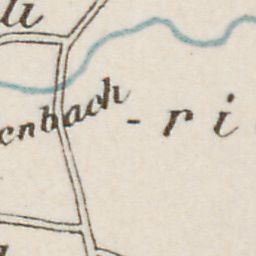 enbach
- ri